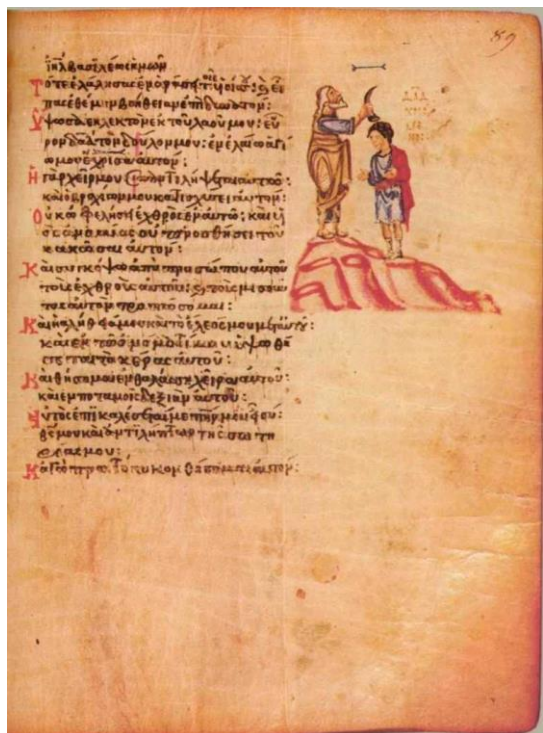 ιηλ βασιλέως ἡμῶν
Τότε ἐλάλησας ἐν ὁράσει τοῖς υἱοῖς σου· καὶ εἶ
πας ἐθέμην βοήθειαν ἐπὶ δυνατόν:
Ὕψωσα ἐκλεκτὸν ἐκ τοῦ λαοῦ μου: εὗ
ρον δαδ τὸν δοῦλον μου: ἐν ἐλαίω ἁγί
ω μου ἔχρισα αὐτόν:
Ἡ γὰρ χείρ μου συναντιλήψεται αὐτῶ:
καὶ ὁ βραχίων μου κατισχύσει αὐτόν:
Οὐκ ὠφελήσει ἐχθρὸς ἐν αὐτῶ: καὶ υἱ
ὸς ἀνομίας οὐ προσθήσει τοῦ
κακῶσαι αὐτόν:
Καὶ συνκόψω ἀπὸ προσώπου αὐτοῦ
τοὺς ἐχθροὺς αὐτοῦ: καὶ τοὺς μισοῦν
τας αὐτὸν τροπώσομαι:
Καὶ ἡ ἀλήθειά μου καὶ τὸ ἔλεός μου μετ αὐτοῦ:
καὶ ἐν τῶ ὀνόματί μου ὑψωθή
σεται τὸ κέρας αὐτοῦ:
Καὶ θήσομαι ἐν θαλάσση χεῖρα αὐτοῦ:
καὶ ἐν ποταμοῖς δεξιὰν αὐτοῦ:
Αὐτὸς ἐπικαλέσεταί με πηρ μου εἶ συ:
θς μου καὶ ἀντιλήπτωρ τῆς σωτη
ρίας μου:
Κἀγὼ πρωτότοκον θήσομαι αὐτόν:
89
ΔΑΔ